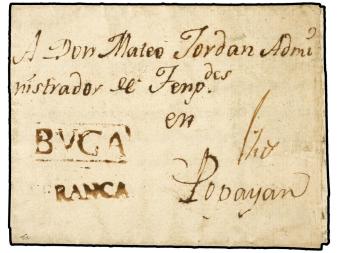 A Don Mateo Jordan Admi
nistrador de Temp.des
en
BVGA
FRANCA
Popayan